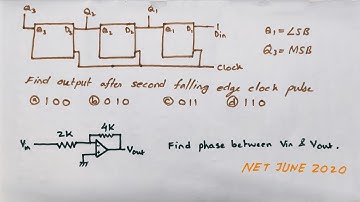 Q₃ Q₂ Q₁ 1
Q₃ D₃ Q₂ D₂ Q₁ D₁ Din
Q₁ = LSB
Q₃ = MSB
Clock
Find output after second falling edge clock pulse
ⓐ 100 ⓑ 010 ⓒ 011 ⓓ 110
2K 4K
Vin Vout
Find phase between Vin & Vout.
NET JUNE 2020